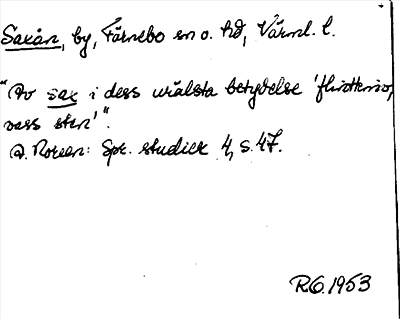 Saxån, by, Färnebo sn o. hd, Värml. l.
"Av sax i dess uräldsta betydelse 'flintkniv,
vass sten'".
A. Noreen: Spr. studier 4, s. 47.
RO. 1953